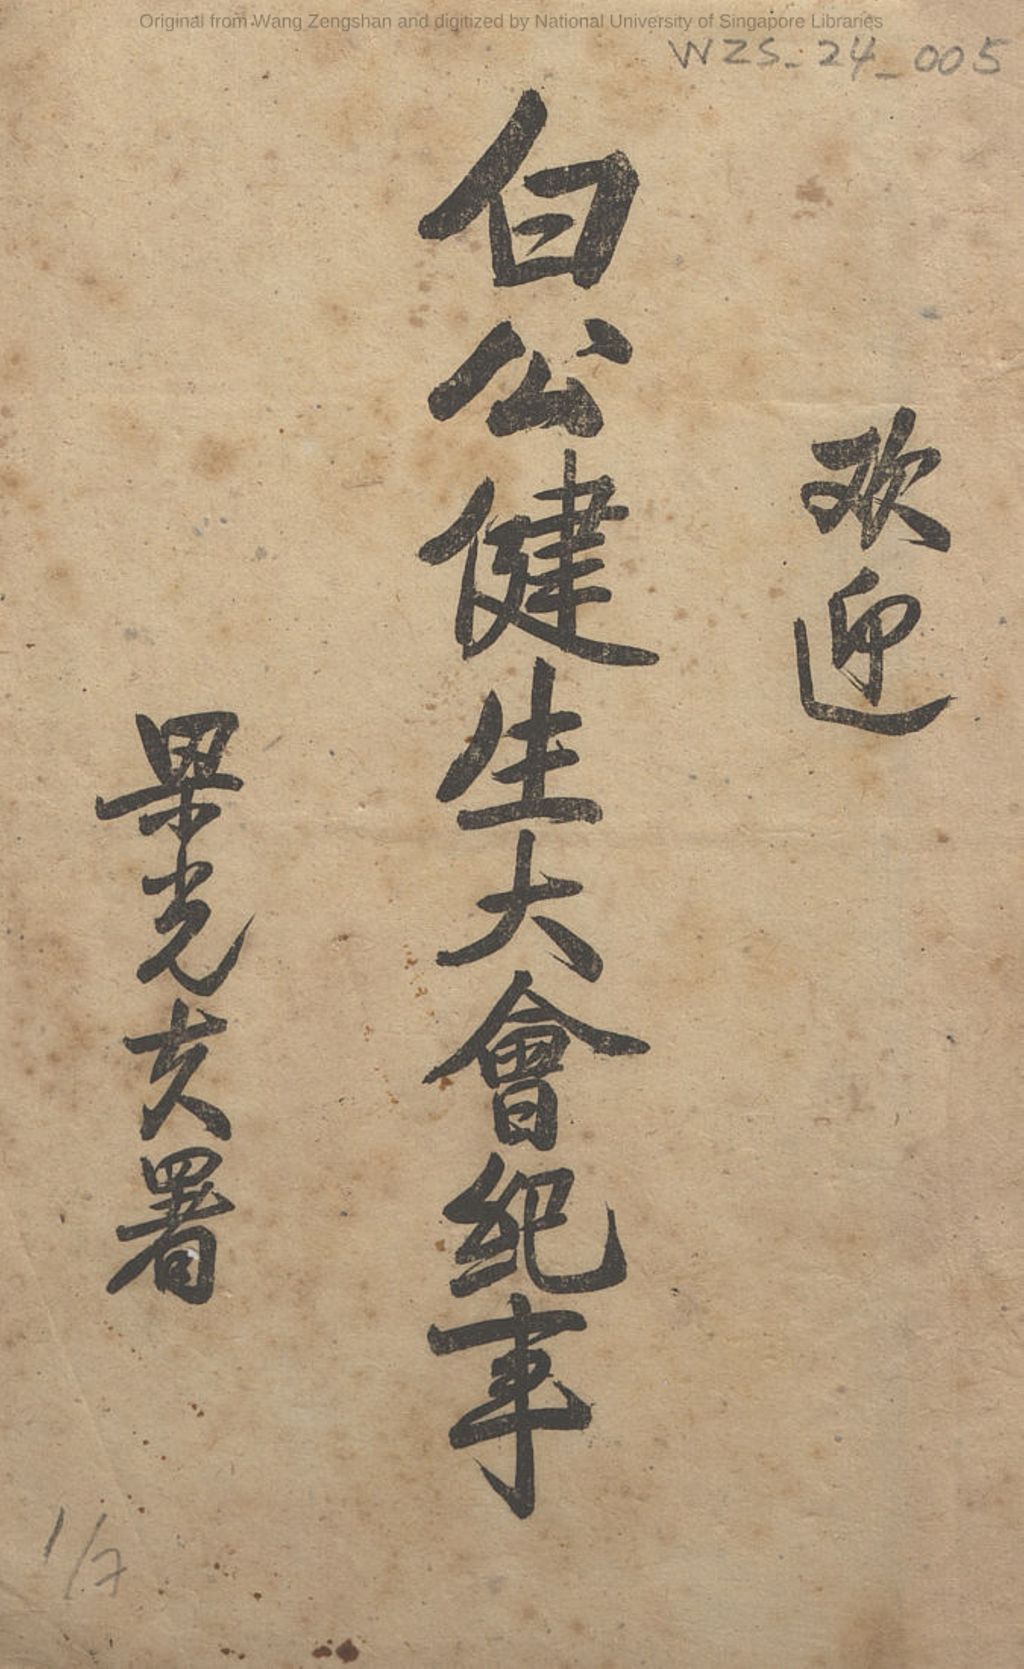 Original from Wang Zengshan and digitized by National University of Singapore Libraries
WZS_24_005
欢迎
白公健生大會纪事
畢光友署
1/7